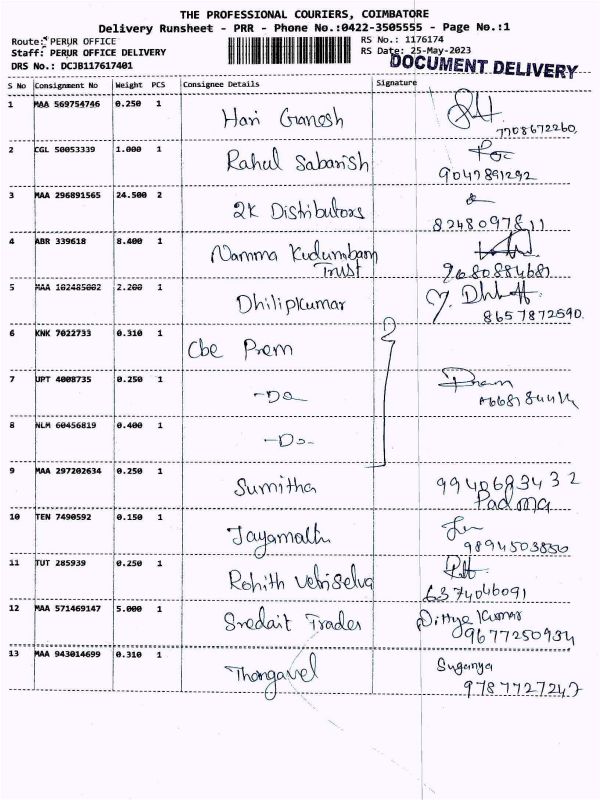 THE PROFESSIONAL COURIERS, COIMBATORE
Delivery Runsheet - PRR - Phone No.:0422-3505555 - Page No.:1
Route: PERUR OFFICE
RS No.: 1176174
Staff: PERUR OFFICE DELIVERY
RS Date: 25-May-2023
DRS No.: DCJB117617401
DOCUMENT DELIVERY
S No Consignment No Weight PCS Consignee Details Signature
1 MAA 569754746 0.250 1 Hari Ganesh
7708672260
2 CGL 50053339 1.000 1 Rahul Sabarish
9047891292
3 MAA 296891565 24.500 2 2K Distributors
8248097811
4 ABR 339618 8.400 1 Namma Kudumbam
Trust 9680884681
5 MAA 102485002 2.200 1 Dhilipkumar
8657872590
6 KNK 7022733 0.310 1 Cbe Prem
7 UPT 4008735 0.250 1 -Do-
8 NLM 60456819 0.400 1 -Do-
9 MAA 297202634 0.250 1 Sumitha 9940683432
Padma
10 TEN 7490592 0.150 1
9894503850
11 TUT 285939 0.250 1 Rohith Vetriselva
6374046091
12 MAA 571469147 5.000 1 Sredait Trades
9677250934
13 MAA 943014699 0.310 1 Thangavel Suganya
9787727247